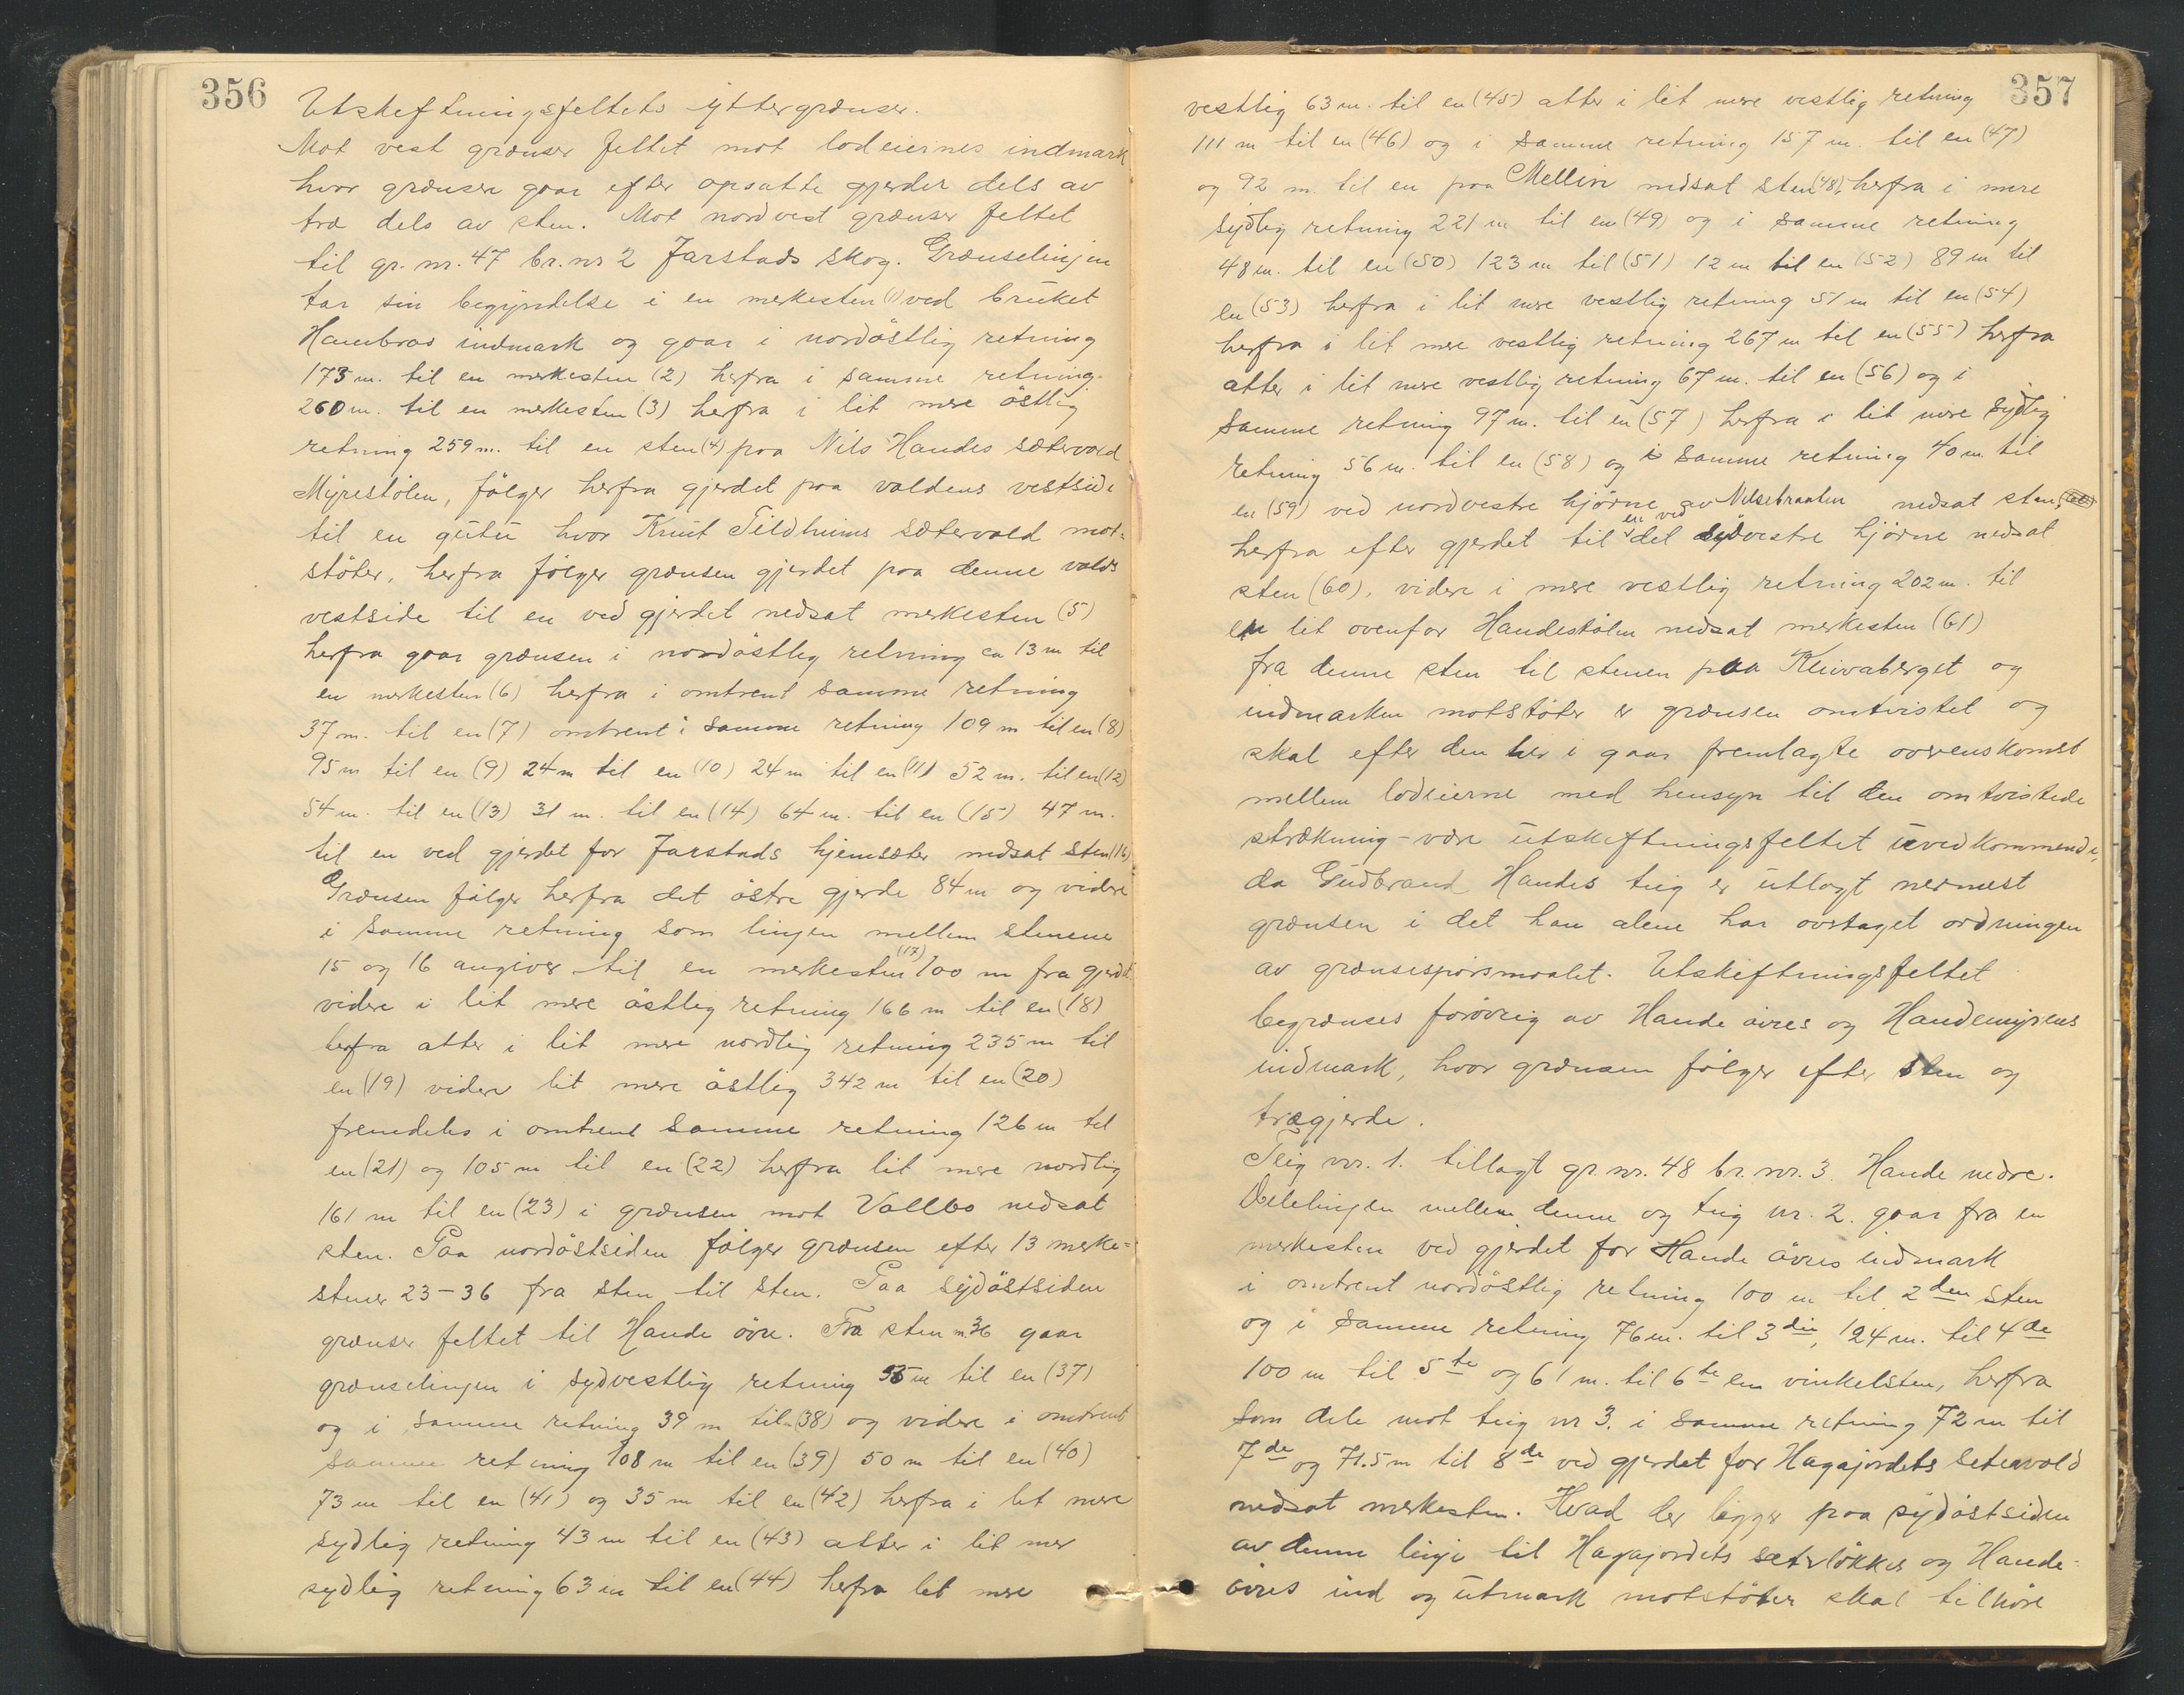 356
Utskiftningsfeltets yttergrænser.
Mot vest grænser feltet mot lodeiernes indmark
hvor grænsen gaar efter opsatte gjerder dels av
træ dels av sten. Mot nordvest grænser feltet
til gr. nr. 47 br. nr 2 Jarstads skog. Grænselinjen
tar sin begyndelse i en merkesten (1) ved bruket
Hambros indmark og gaar i nordöstlig retning
173 m. til en merkesten (2) herfra i samme retning
260 m. til en merkesten (3) herfra i lit mere östlig
retning 259 m. til en sten (4) paa Nils Handes sætervold
Myrestölen, fölger herfra gjerdet paa voldens vestside
til en gutu hvor Knut Tildheims sætervold mot-
stöter, herfra fölger grænsen gjerdet paa denne volds
vestside til en ved gjerdet nedsat merkesten (5)
herfra gaar grænsen i nordöstlig retning ca 13 m til
en merkesten (6) herfra i omtrent samme retning
37 m. til en (7) omtrent i samme retning 109 m til en (8)
95 m til en (9) 24 m til en (10) 24 m til en (11) 52 m. til en (12)
54 m. til en (13) 31 m. til en (14) 64 m. til en (15) 47 m.
til en ved gjerdet for Jarstads hjemsæter nedsat sten (16)
Grænsen fölger herfra det östre gjerde 84 m og videre
i samme retning som linjen mellem stenene
15 og 16 angiver til en merkesten (17) 100 m fra gjerdet
videre i lit mere östlig retning 166 m til en (18)
herfra atter i lit mere nordlig retning 235 m til
en (19) videre lit mere östlig 342 m til en (20)
fremdeles i omtrent samme retning 126 m til
en (21) og 105 m til en (22) herfra lit mere nordlig
161 m til en (23) i grænsen mot Vallbo nedsat
sten. Paa nordöstsiden fölger grænsen efter 13 merke-
stener 23-36 fra sten til sten. Paa sydöstsiden
grænser feltet til Hande övre. Fra sten nr. 36 gaar
grænselinjen i sydvestlig retning m til en (37)
og i samme retning 39 m til (38) og videre i omtrent
samme retning 108 m til en (39) 50 m til en (40)
73 m til en (41) og 35 m til en (42) herfra i lit mere
sydlig retning 43 m til en (43) atter i lit mer
sydlig retning 63 m til en (44) herfra lit mere
357
vestlig 63 m. til en (45) atter i lit mere vestlig retning
111 m til en (46) og i samme retning 157 m. til en (47)
og 92 m. til en paa Mellin nedsat sten (48), herfra i mere
sydlig retning 221 m til en (49) og i samme retning
48 m. til en (50) 123 m til (51) 12 m til en (52) 89 m til
en (53) herfra i lit mere vestlig retning 51 m til en (54)
herfra i lit mere vestlig retning 267 m til en (55) herfra
atter i lit mere vestlig retning 67 m. til en (56) og i
samme retning 97 m. til en (57) herfra i lit mere sydlig
retning 56 m. til en (58) og i samme retning 40 m til
en (59) ved nordvestre hjörne av Nilsebraaten nedsat sten,
herfra efter gjerdet til en ved det sydvestre hjörne nedsat
sten (60), videre i mere vestlig retning 202 m. til
en lit ovenfor Handestölen nedsat merkesten (61)
fra denne sten til stenen paa Kleivaberget og
indmarken motstöter er grænsen omtvistet og
skal efter den her i gaar fremlagte overenskomst
mellem lodeierne med hensyn til den omtvistede
strækning - være utskiftningsfeltet uvedkommende,
da Gudbrand Handes teig er utlagt nermest
grænsen i det han alene har overtaget ordningen
av grænsespörsmaalet. Utskiftningsfeltet
begrænses forövrig av Hande övres og Handemyrens
indmark, hvor grænsen fölger efter sten og
trægjerde.
Teig nr. 1. tillagt gr. nr. 48 br. nr. 3. Hande nedre.
Delelinjen mellem denne og teig nr. 2. gaar fra en
merkesten ved gjerdet for Hande övres indmark
i omtrent nordöstlig retning 100 m til 2den sten
og i samme retning 76 m. til 3die, 124 m. til 4de
100 m til 5te og 61 m. til 6te en vinkelsten, herfra
som dele mot teig nr 3. i samme retning 72 m til
7de og 71.5 m til 8de ved gjerdet for Hagajordets setervold
nedsat merkesten. Hvad der ligger paa sydöstsiden
av denne linje til Hagajordets seterlökker og Hande-
övres ind og utmark motstöter skal tilhöre